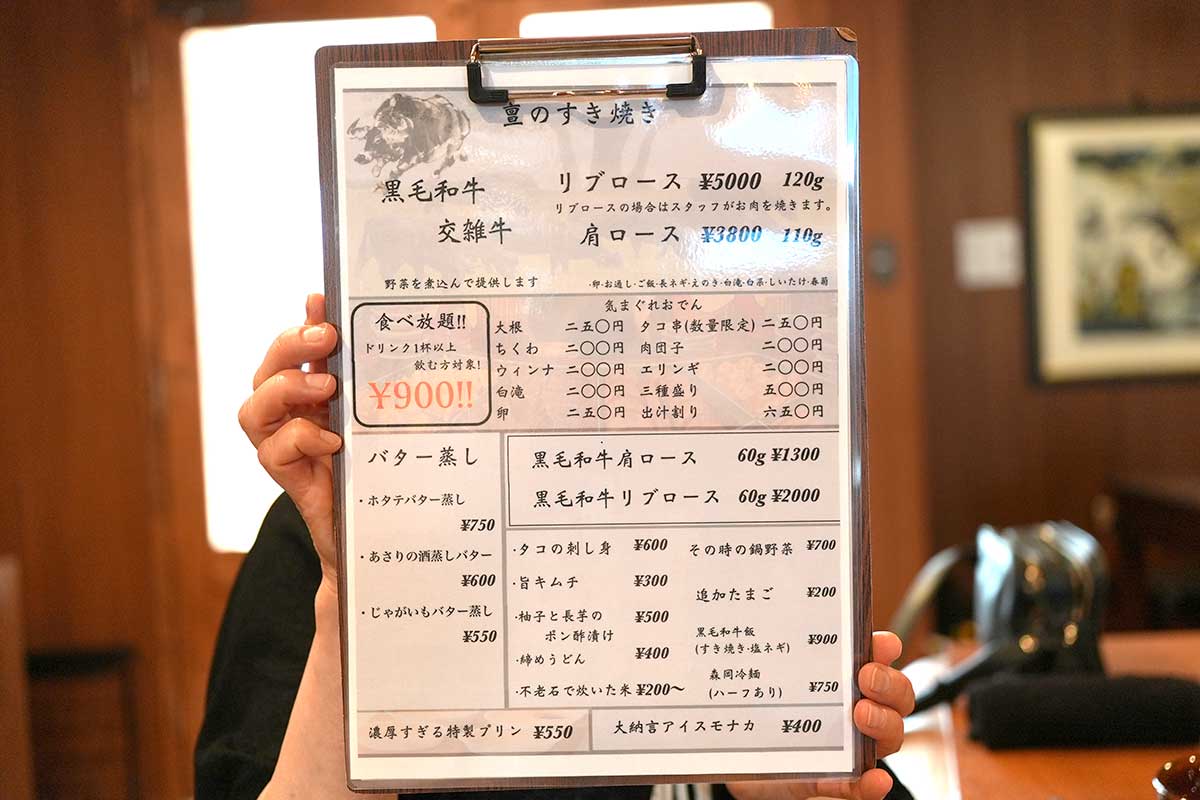 亶のすき焼き
黒毛和牛 リブロース ¥5000 120g
リブロースの場合はスタッフがお肉を焼きます。
交雑牛 肩ロース ¥3800 110g
野菜を煮込んで提供します
・卵・お通し・ご飯・長ネギ・えのき・白滝・白菜・しいたけ・春菊
食べ放題!!
ドリンク1杯以上
飲む方対象!
¥900!!
気まぐれおでん
大根 二五〇円 タコ串(数量限定) 二五〇円
ちくわ 二〇〇円 肉団子 二〇〇円
ウィンナ 二〇〇円 エリンギ 二〇〇円
白滝 二〇〇円 三種盛り 五〇〇円
卵 二五〇円 出汁割り 六五〇円
バター蒸し
・ホタテバター蒸し
¥750
・あさりの酒蒸しバター
¥600
・じゃがいもバター蒸し
¥550
黒毛和牛肩ロース 60g ¥1300
黒毛和牛リブロース 60g ¥2000
・タコの刺し身 ¥600
・旨キムチ ¥300
・柚子と長芋の
ポン酢漬け ¥500
・締めうどん ¥400
・不老石で炊いた米 ¥200〜
その時の鍋野菜 ¥700
追加たまご ¥200
黒毛和牛飯
(すき焼き・塩ネギ) ¥900
森岡冷麺
(ハーフあり) ¥750
濃厚すぎる特製プリン ¥550
大納言アイスモナカ ¥400